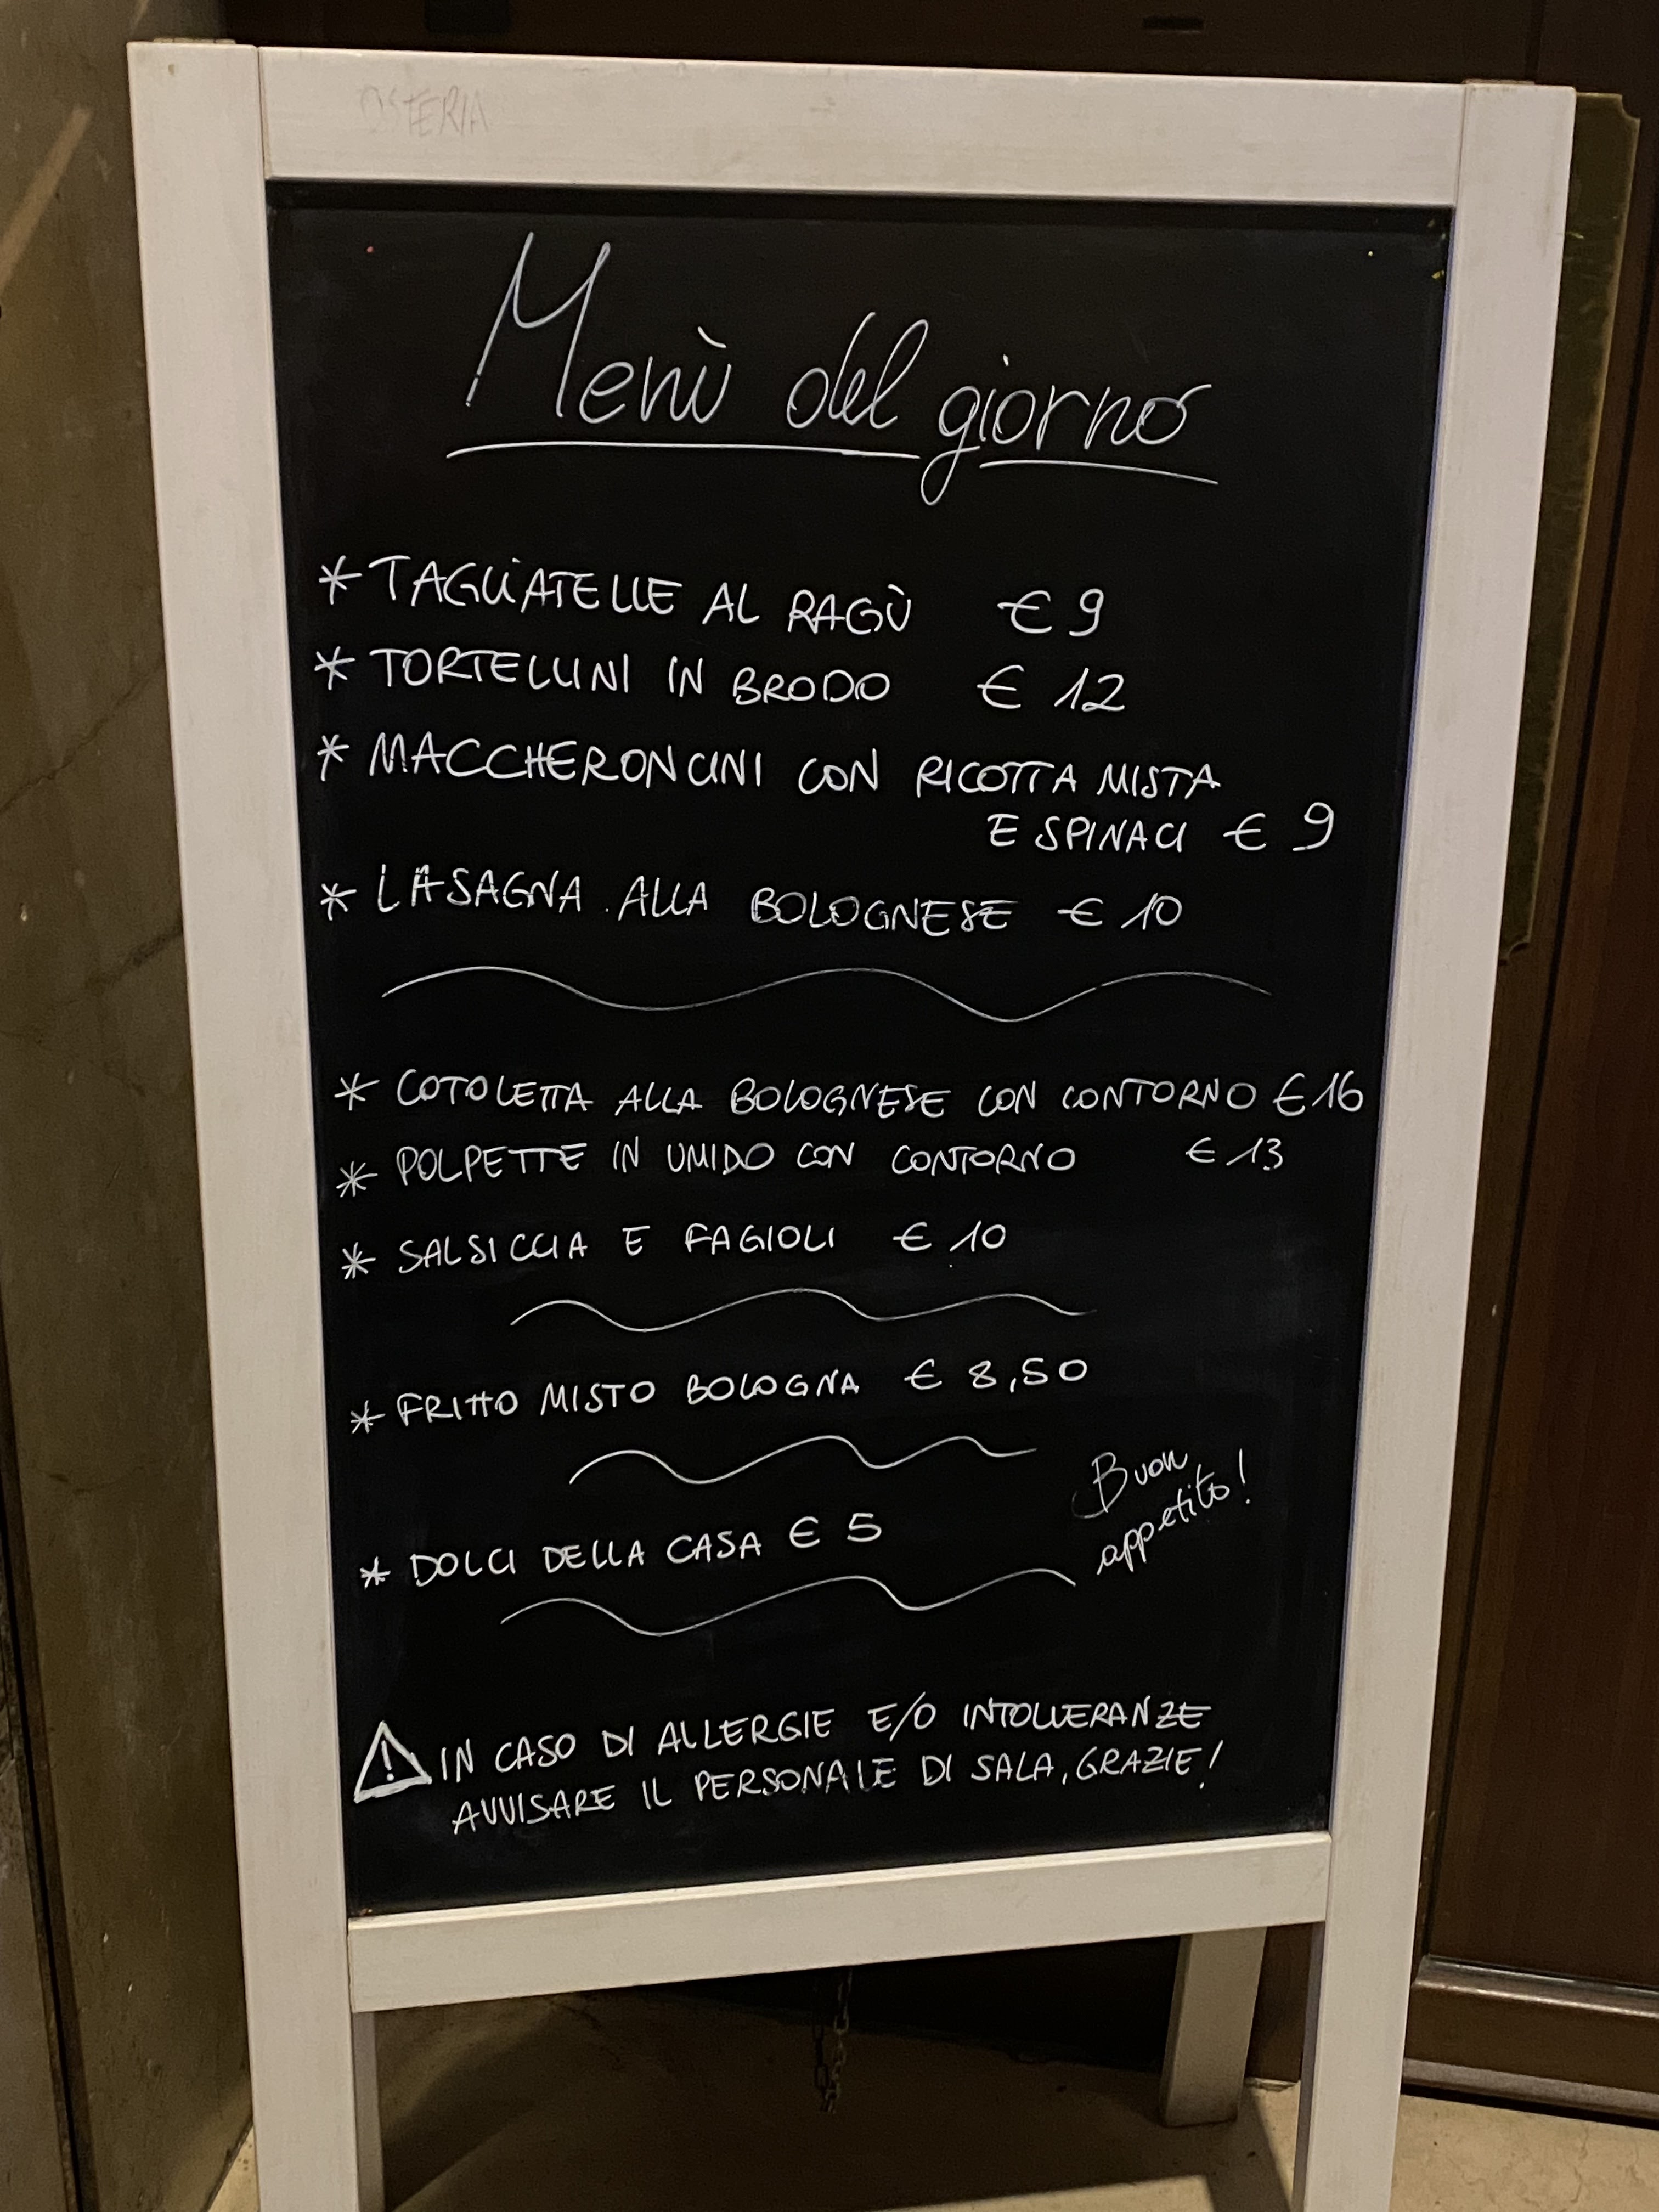 OSTERIA
Menù del giorno
* TAGLIATELLE AL RAGÙ € 9
* TORTELLINI IN BRODO € 12
* MACCHERONCINI CON RICOTTA MISTA
E SPINACI € 9
* LASAGNA ALLA BOLOGNESE € 10
* COTOLETTA ALLA BOLOGNESE CON CONTORNO € 16
* POLPETTE IN UMIDO CON CONTORNO € 13
* SALSICCIA E FAGIOLI € 10
* FRITTO MISTO BOLOGNA € 8,50
* DOLCI DELLA CASA € 5
Buon
appetito!
IN CASO DI ALLERGIE E/O INTOLLERANZE
AVVISARE IL PERSONALE DI SALA, GRAZIE!